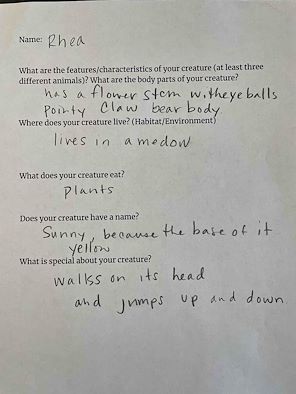 Name: Rhea
What are the features/characteristics of your creature (at least three
different animals)? What are the body parts of your creature?
has a flower stem with eyeballs
Pointy Claw bear body
Where does your creature live? (Habitat/Environment)
lives in a medow
What does your creature eat?
Plants
Does your creature have a name?
Sunny, because the base of it
yellow
What is special about your creature?
walks on its head
and jumps up and down